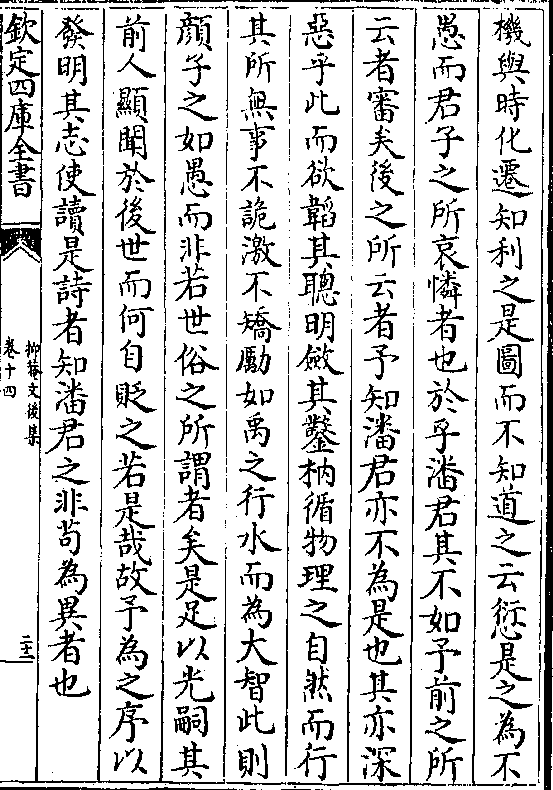 機與時化遷知利之是圖而不知道之云愆是之為不
愚而君子之所哀憐者也於乎潘君其不如予前之所
云者審矣後之所云者予知潘君亦不為是也其亦深
惡乎此而欲韜其聰明斂其鑿枘循物理之自然而行
其所無事不詭激不矯勵如禹之行水而為大智此則
顔子之如愚而非若世俗之所謂者矣是足以光嗣其
前人顯聞於後世而何自貶之若是哉故予為之序以
發明其志使讀是詩者知潘君之非苟為異者也
欽定四庫全書
抑菴文後集
卷十四
二十一